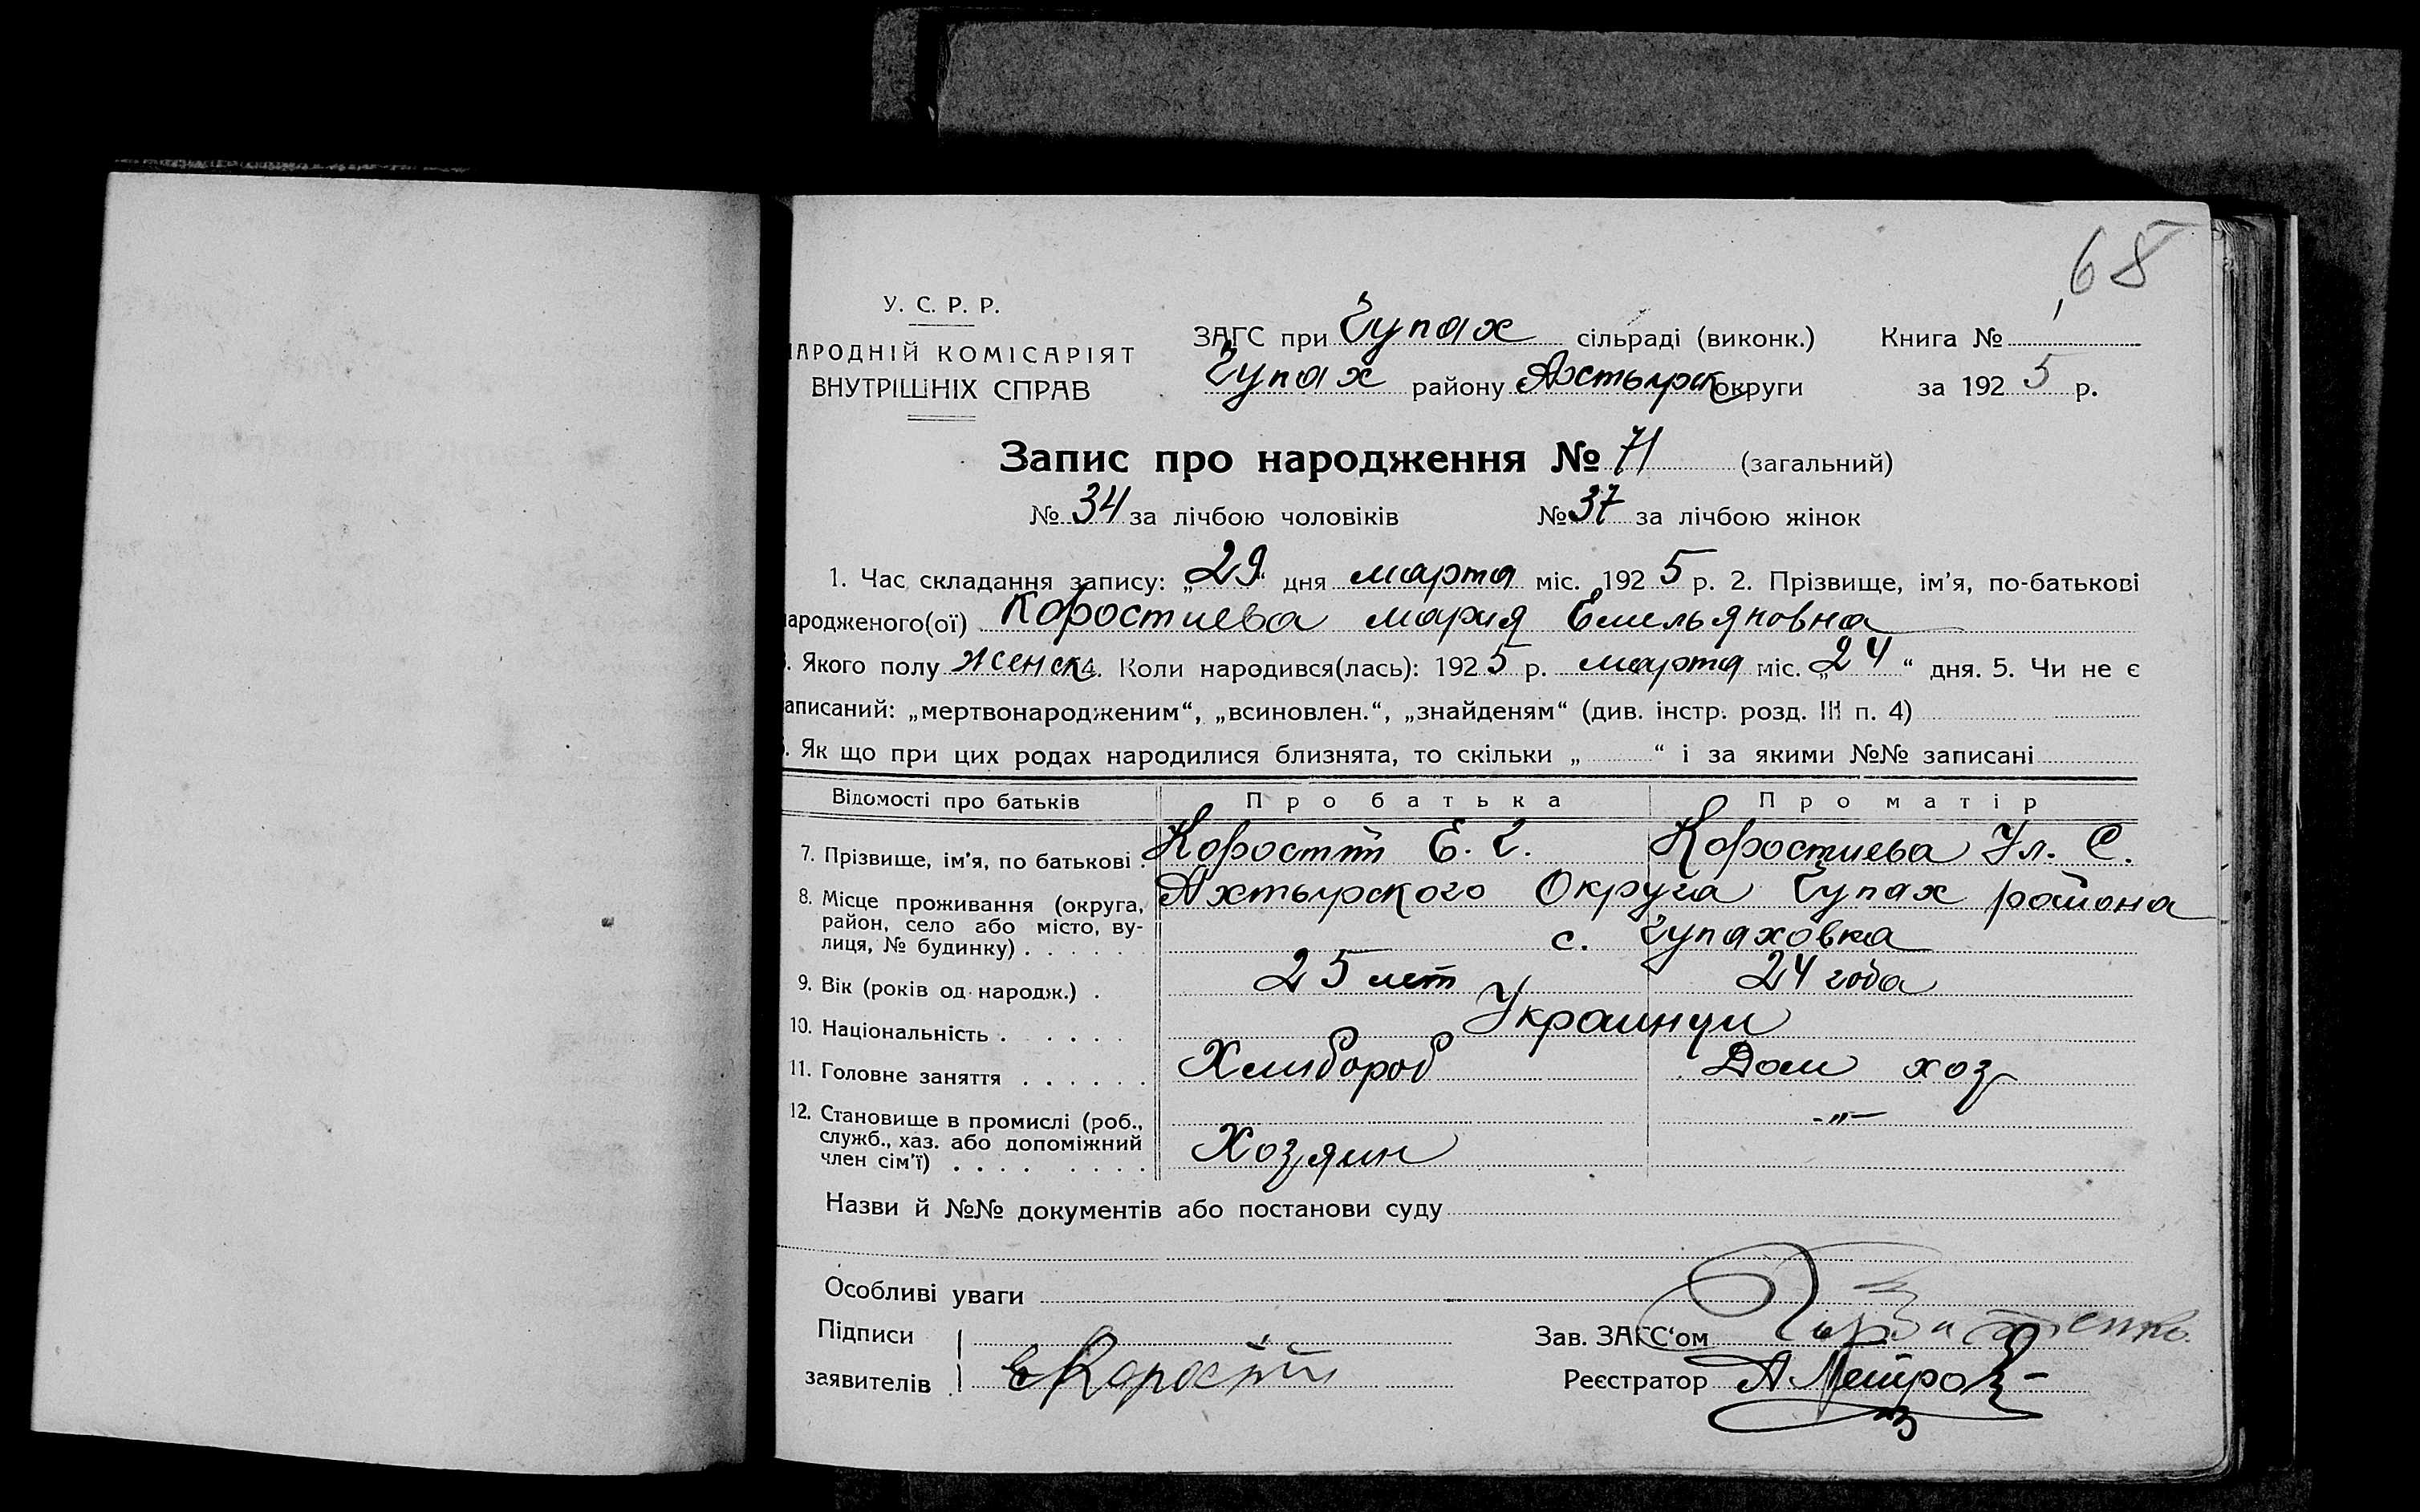 68
У. С. Р. Р.
АРОДНІЙ КОМІСАРІЯТ
ВНУТРІШНІХ СПРАВ
ЗАГС при Чупах сільраді (виконк.) Книга №
Чупах району Ахтырск округи за 1925 р.
Запис про народження № 71 (загальний)
№ 34 за лічбою чоловіків № 37 за лічбою жінок
1. Час складання запису: „29“ дня марта міс. 1925 р. 2. Прізвище, ім’я, по-батькові
ародженого(ої) Коростиева Мария Емельяновна
. Якого полу женск 4. Коли народився(лась): 1925 р. марта міс. „24“ дня. 5. Чи не є
аписаний: „мертвонародженим“, „всиновлен.“, „знайденям“ (див. інстр. розд. III п. 4)
. Як що при цих родах народилися близнята, то скільки „ “ і за якими №№ записані
Відомості про батьків Про батька Про матір
7. Прізвище, ім’я, по батькові . Коростій Е. Коростиева Ул. С.
8. Місце проживання (округа, район, село або місто, вулиця, № будинку) . . . . . . Ахтырского Округа Чупах района
с. Чупаховка
9. Вік (років од народж.) . 25 лет 24 года
10. Національність . . . . . Украинци
11. Головне заняття . . . . . . Хлибороб Дом хоз
12. Становище в промислі (роб., служб., хаз. або допоміжний член сім’ї) . . . . . . . . Хозяин -„-
Назви й №№ документів або постанови суду
Особливі уваги
Підписи
заявителів Е Коростій
Зав. ЗАГС‘ом
Реєстратор А